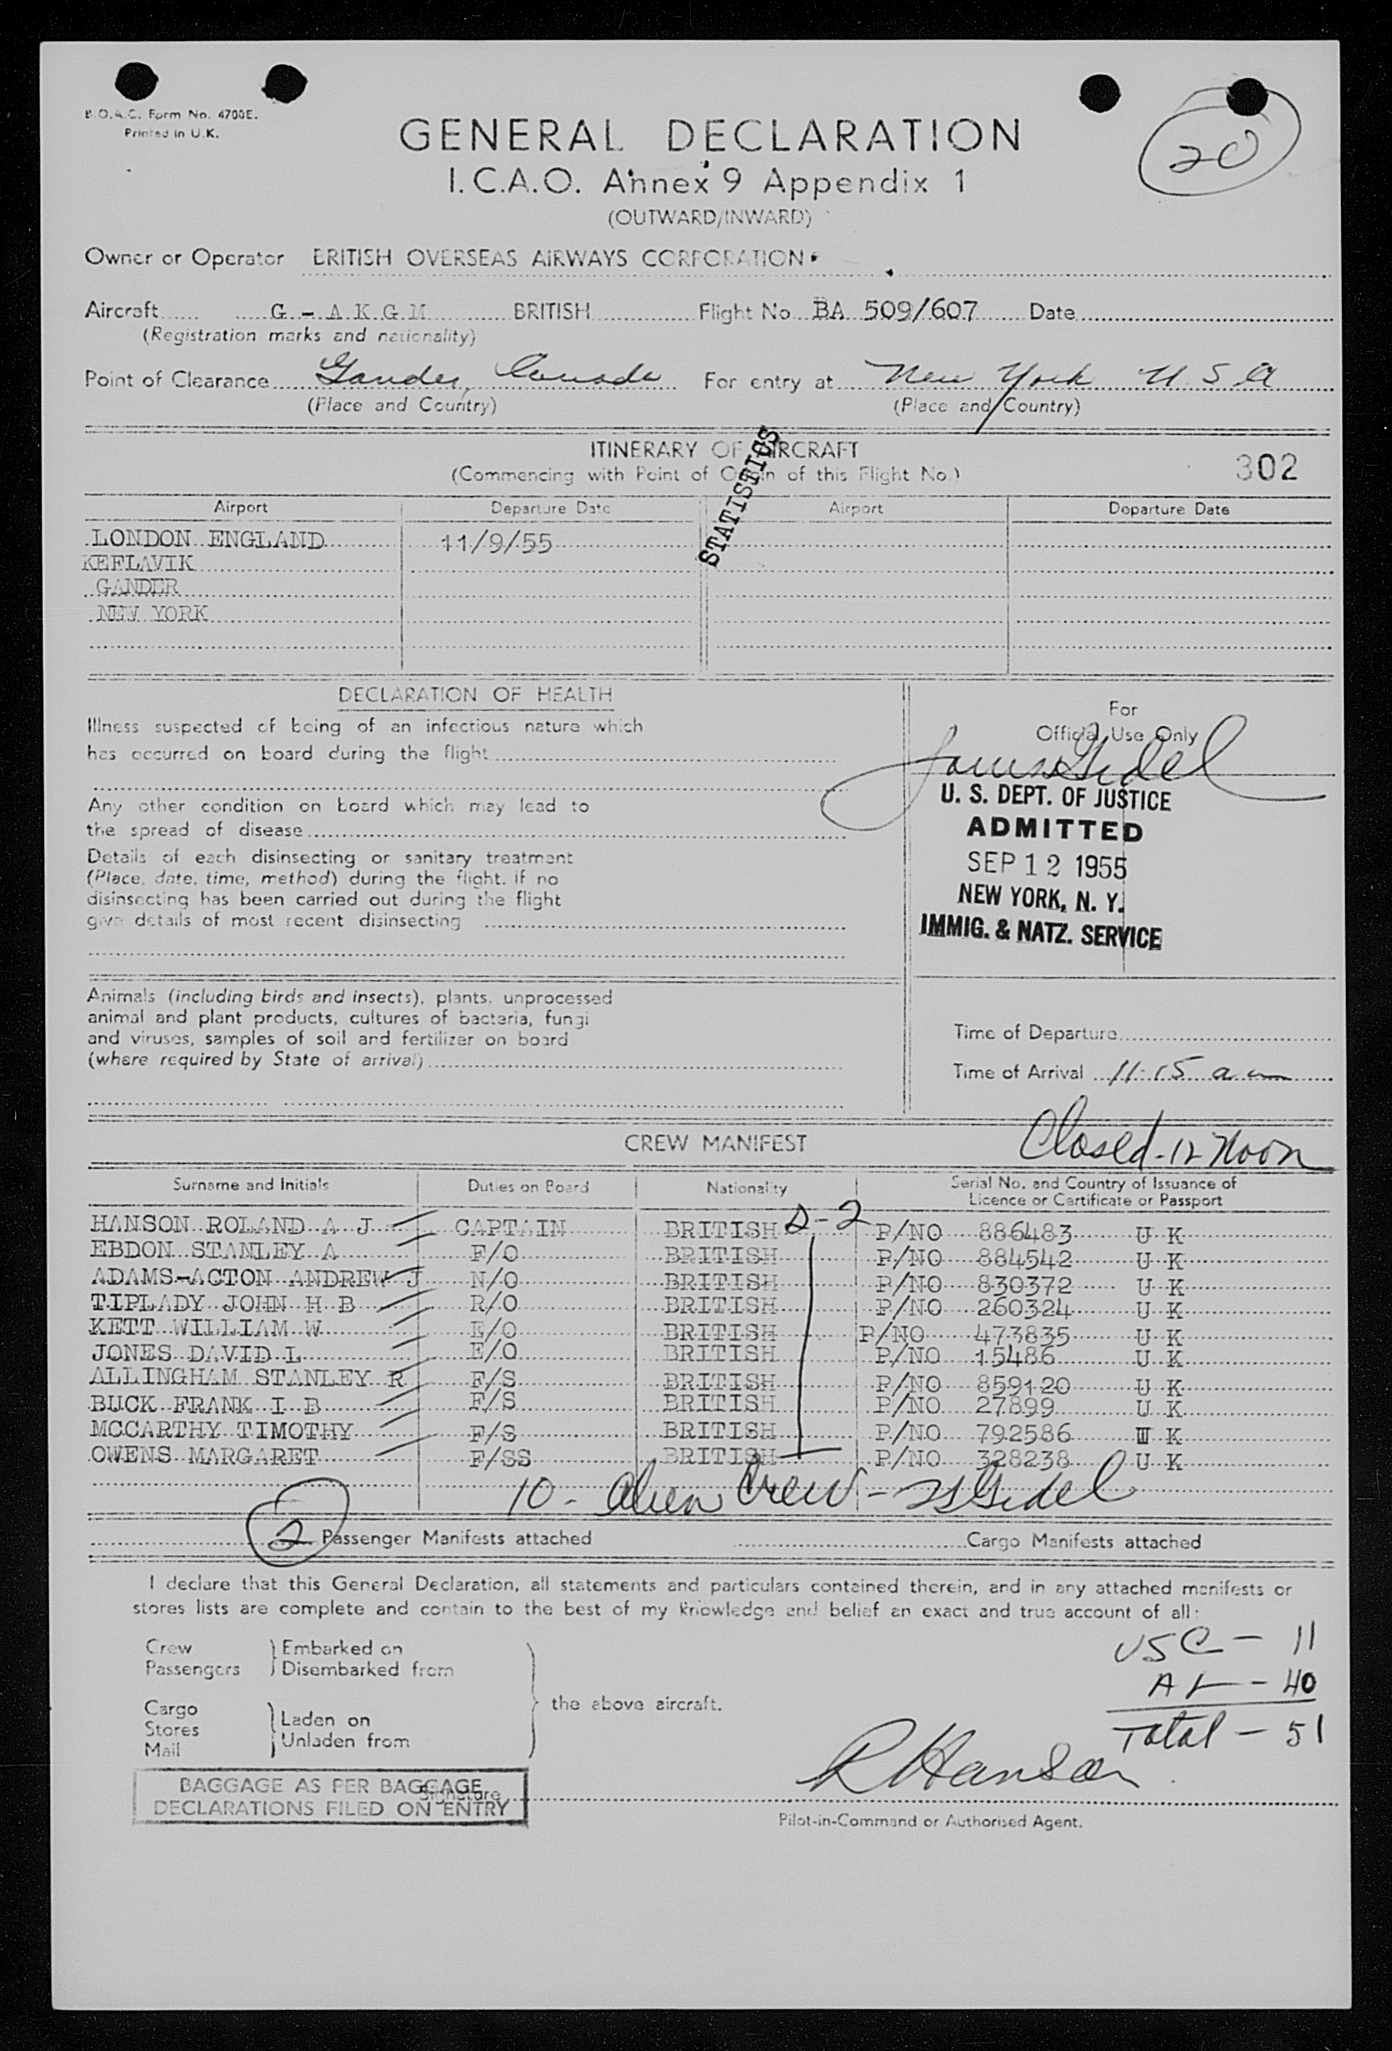 B.O.A.C. Form No. 4700E.
Printed in U.K.
20
GENERAL DECLARATION
I.C.A.O. Annex 9 Appendix 1
(OUTWARD/INWARD)
Owner or Operator BRITISH OVERSEAS AIRWAYS CORPORATION
Aircraft G - A K G M BRITISH Flight No. BA 509/607 Date
(Registration marks and nationality)
Point of Clearance Gander, Canada For entry at New York U S A
(Place and Country) (Place and Country)
ITINERARY OF AIRCRAFT
(Commencing with Point of Origin of this Flight No.)
302
STATISTICS
Airport Departure Date Airport Departure Date
LONDON ENGLAND 11/9/55
KEFLAVIK
GANDER
NEW YORK
DECLARATION OF HEALTH
Illness suspected of being of an infectious nature which
has occurred on board during the flight
Any other condition on board which may lead to
the spread of disease
Details of each disinsecting or sanitary treatment
(Place, date, time, method) during the flight. If no
disinsecting has been carried out during the flight
give details of most recent disinsecting
For
Official Use Only
U. S. DEPT. OF JUSTICE
ADMITTED
SEP 12 1955
NEW YORK, N. Y.
IMMIG. & NATZ. SERVICE
Animals (including birds and insects), plants, unprocessed
animal and plant products, cultures of bacteria, fungi
and viruses, samples of soil and fertilizer on board
(where required by State of arrival)
Time of Departure
Time of Arrival 11.15 a m
Closed - 12 Noon
CREW MANIFEST
Surname and Initials Duties on Board Nationality Serial No. and Country of Issuance of
Licence or Certificate or Passport
HANSON ROLAND A J CAPTAIN BRITISH D-2 P/NO 886483 U K
EBDON STANLEY A F/O BRITISH P/NO 884542 U K
ADAMS-ACTON ANDREW J N/O BRITISH P/NO 830372 U K
TIPLADY JOHN H B R/O BRITISH P/NO 260324 U K
KETT WILLIAM W E/O BRITISH P/NO 473835 U K
JONES DAVID L E/O BRITISH P/NO 15486 U K
ALLINGHAM STANLEY R F/S BRITISH P/NO 859120 U K
BUCK FRANK I B F/S BRITISH P/NO 27899 U K
MCCARTHY TIMOTHY F/S BRITISH P/NO 792586 U K
OWENS MARGARET F/SS BRITISH P/NO 328238 U K
10 - Alien Crew -
2 Passenger Manifests attached Cargo Manifests attached
I declare that this General Declaration, all statements and particulars contained therein, and in any attached manifests or
stores lists are complete and contain to the best of my knowledge and belief an exact and true account of all:
Crew Embarked on
Passengers Disembarked from
Cargo
Stores Laden on
Mail Unladen from
the above aircraft.
USC - 11
AL - 40
Total - 51
R Hanson
BAGGAGE AS PER BAGGAGE
DECLARATIONS FILED ON ENTRY
Signature
Pilot-in-Command or Authorised Agent.